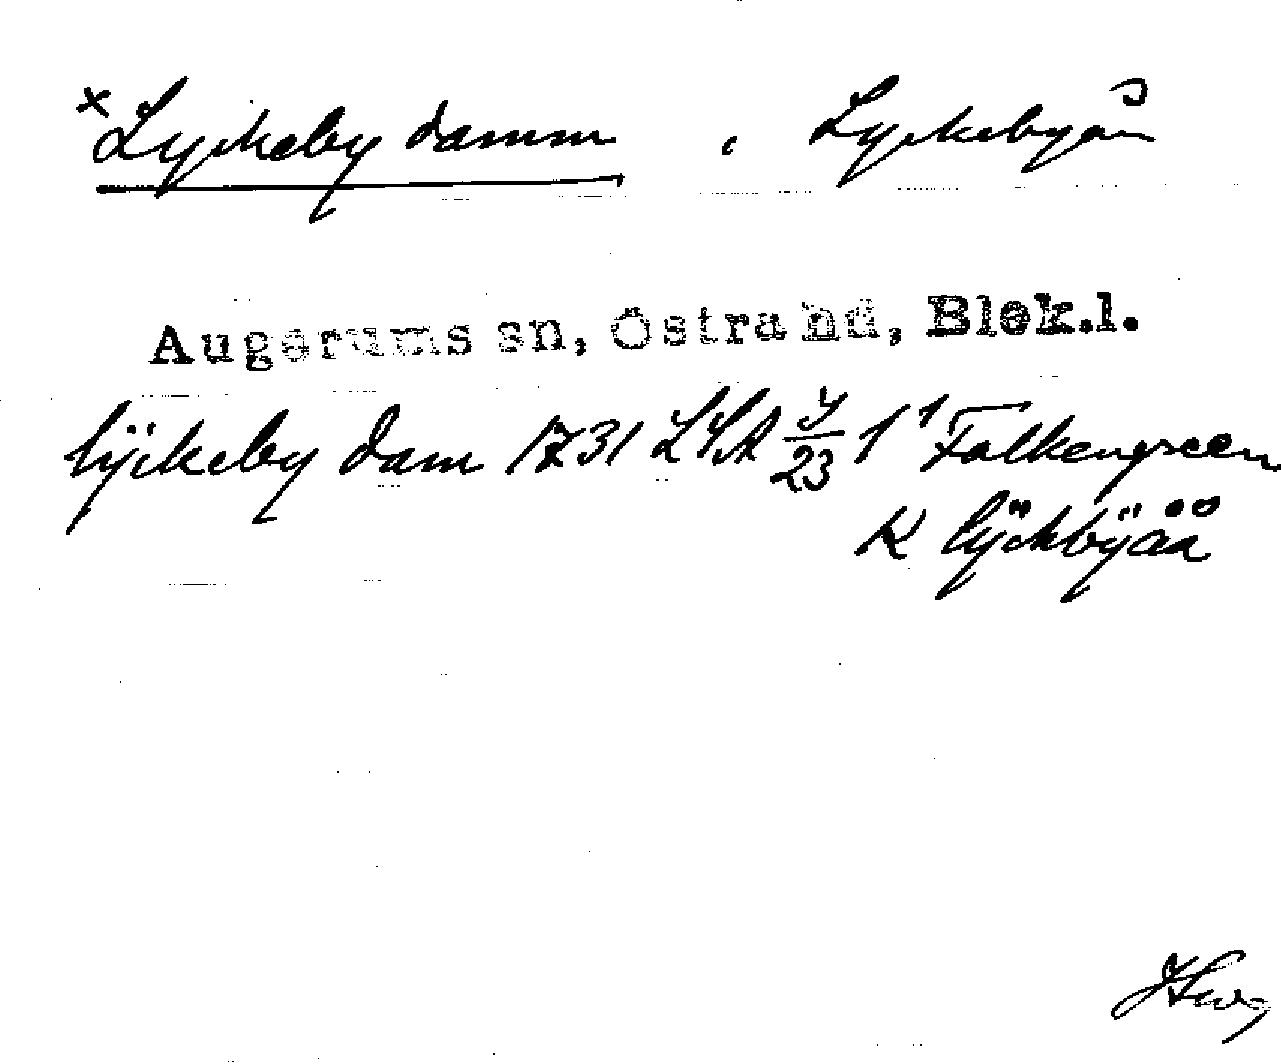 ×Lyckeby damm , Lyckebyån
Augerums sn, Östra hd, Blek.l.
lÿckeby dam 1731 LSA Y/23 1¹ Falkengreen
K lÿckbÿåå